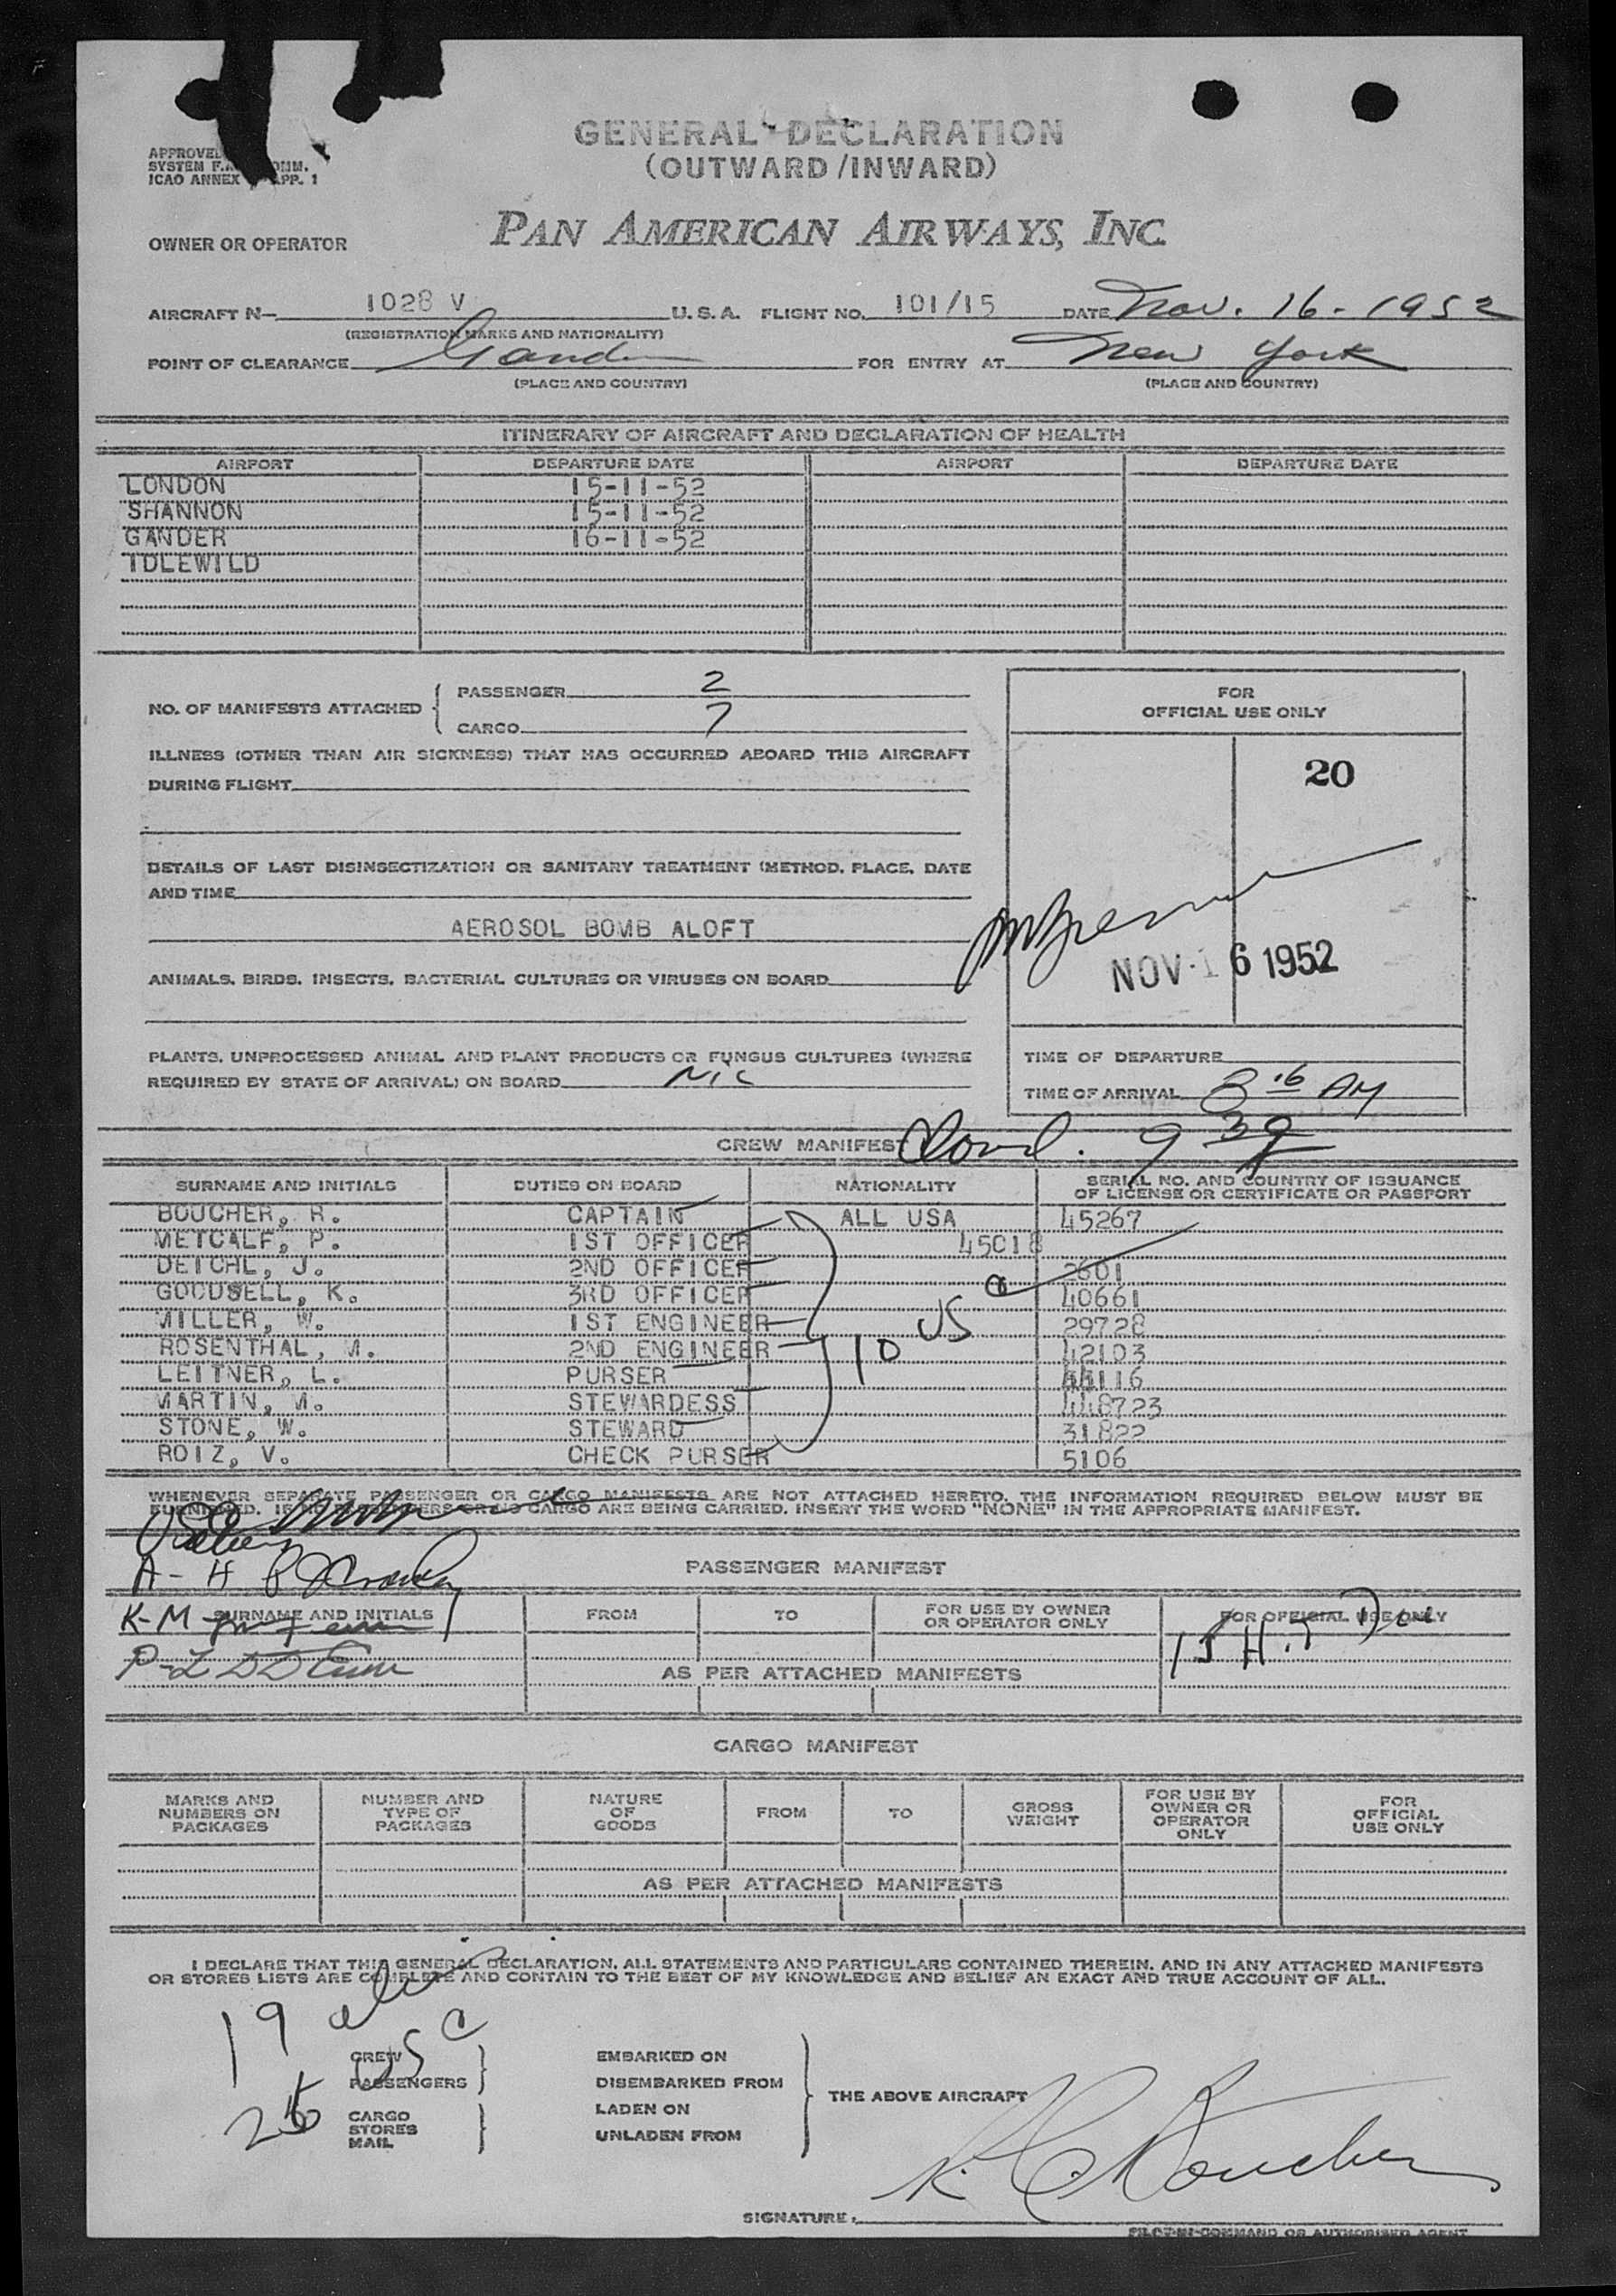 GENERAL DECLARATION
(OUTWARD/INWARD)
APPROVED
SYSTEM
ICAO ANNEX APP. 1
OWNER OR OPERATOR PAN AMERICAN AIRWAYS, INC.
AIRCRAFT N— 1028 V U. S. A. FLIGHT NO. 101/15 DATE Nov. 16 - 1952
(REGISTRATION MARKS AND NATIONALITY)
POINT OF CLEARANCE Gander FOR ENTRY AT New York
(PLACE AND COUNTRY) (PLACE AND COUNTRY)
ITINERARY OF AIRCRAFT AND DECLARATION OF HEALTH
AIRPORT DEPARTURE DATE AIRPORT DEPARTURE DATE
LONDON 15-11-52
SHANNON 15-11-52
GANDER 16-11-52
IDLEWILD
NO. OF MANIFESTS ATTACHED { PASSENGER 2
CARGO 7
FOR
OFFICIAL USE ONLY
ILLNESS (OTHER THAN AIR SICKNESS) THAT HAS OCCURRED ABOARD THIS AIRCRAFT
DURING FLIGHT
20
DETAILS OF LAST DISINSECTIZATION OR SANITARY TREATMENT (METHOD, PLACE, DATE
AND TIME
AEROSOL BOMB ALOFT
NOV 16 1952
ANIMALS, BIRDS, INSECTS, BACTERIAL CULTURES OR VIRUSES ON BOARD
PLANTS, UNPROCESSED ANIMAL AND PLANT PRODUCTS OR FUNGUS CULTURES (WHERE
REQUIRED BY STATE OF ARRIVAL) ON BOARD NIL
TIME OF DEPARTURE
TIME OF ARRIVAL 8 16 AM
CREW MANIFEST 9 39
SURNAME AND INITIALS DUTIES ON BOARD NATIONALITY SERIAL NO. AND COUNTRY OF ISSUANCE
OF LICENSE OR CERTIFICATE OR PASSPORT
BOUCHER, R. CAPTAIN ALL USA 45267
METCALF, P. 1ST OFFICER 45018
DEICHL, J. 2ND OFFICER 2601
GOODSELL, K. 3RD OFFICER 40661
MILLER, W. 1ST ENGINEER 29728
ROSENTHAL, M. 2ND ENGINEER 42103
LEITNER, L. PURSER 44116
MARTIN, M. STEWARDESS 448723
STONE, W. STEWARD 31822
ROIZ, V. CHECK PURSER 5106
10 US C
WHENEVER SEPARATE PASSENGER OR CARGO MANIFESTS ARE NOT ATTACHED HERETO, THE INFORMATION REQUIRED BELOW MUST BE
FURNISHED. IF NO PASSENGERS OR NO CARGO ARE BEING CARRIED, INSERT THE WORD "NONE" IN THE APPROPRIATE MANIFEST.
A - H
PASSENGER MANIFEST
K-M
SURNAME AND INITIALS FROM TO FOR USE BY OWNER
OR OPERATOR ONLY FOR OFFICIAL USE ONLY
P-Z
AS PER ATTACHED MANIFESTS
CARGO MANIFEST
MARKS AND
NUMBERS ON
PACKAGES
NUMBER AND
TYPE OF
PACKAGES
NATURE
OF
GOODS
FROM
TO
GROSS
WEIGHT
FOR USE BY
OWNER OR
OPERATOR
ONLY
FOR
OFFICIAL
USE ONLY
AS PER ATTACHED MANIFESTS
I DECLARE THAT THIS GENERAL DECLARATION, ALL STATEMENTS AND PARTICULARS CONTAINED THEREIN, AND IN ANY ATTACHED MANIFESTS
OR STORES LISTS ARE COMPLETE AND CONTAIN TO THE BEST OF MY KNOWLEDGE AND BELIEF AN EXACT AND TRUE ACCOUNT OF ALL.
19 aliens
USC
CREW
PASSENGERS
CARGO
STORES
MAIL
EMBARKED ON
DISEMBARKED FROM
LADEN ON
UNLADEN FROM
THE ABOVE AIRCRAFT
SIGNATURE: Boucher
PILOT-IN-COMMAND OR AUTHORISED AGENT